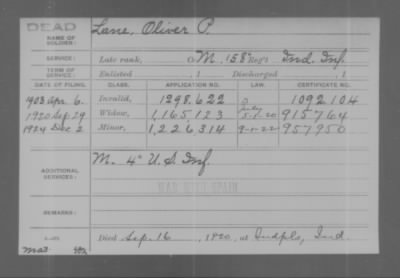 DEAD
NAME OF SOLDIER: Lane, Oliver P.
SERVICE: Late rank, Co M, 158" Reg't Ind. Inf.
TERM OF SERVICE: Enlisted , 1 Discharged , 1
DATE OF FILING. CLASS. APPLICATION NO. LAW. CERTIFICATE NO.
1903 Apr. 6. Invalid, 1298,622 1092,104
1920 Sep 29 Widow, 1,165,123 5-1-20 915764
1924 Dec 2 Minor, 1,226,314 9-1-22 957950
ADDITIONAL SERVICES: M. 4" U.S. Inf.
WAR WITH SPAIN
REMARKS:
Died Sep. 16, 1920, at Indpls, Ind.